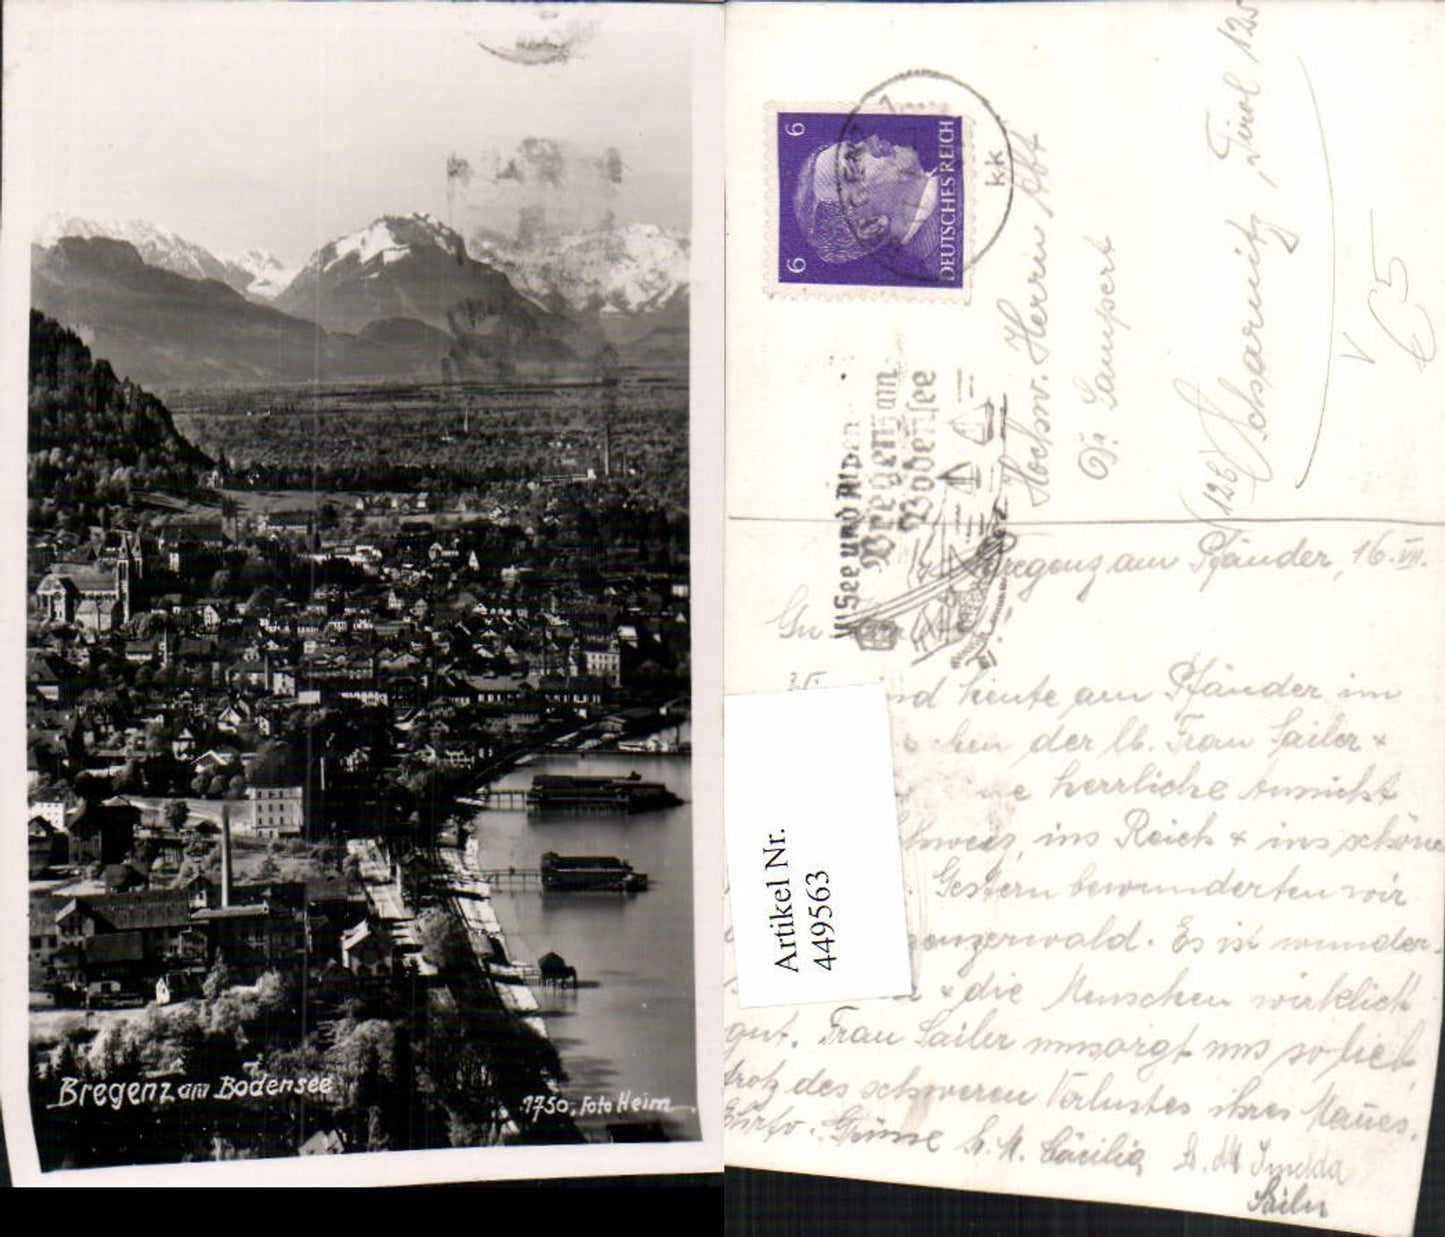 Bregenz am Bodensee
1750. Foto Heim
6 6
DEUTSCHES REICH
kk
See und Alpen
Bregenz am
Bodensee
Hochw. Herrn Abt
Dr. Lampert
(12b) Scharnitz, Tirol 125
€5
V
Bregenz am Pfänder, 16. VII.
Gr
sind heute am Pfänder im
chen der lb. Frau Sailer +
ne herrliche Aussicht
Schweiz, ins Reich + ins schöne
Gestern bewunderten wir
genzerwald. Es ist wunder-
+ die Menschen wirklich
gut. Frau Sailer umsorgt uns so lieb,
trotz des schweren Verlustes ihres Mannes.
Ehrfv. Grüsse Sr. M. Cäcilia Sr. M. Imelda
Sailer
Artikel Nr.
449563